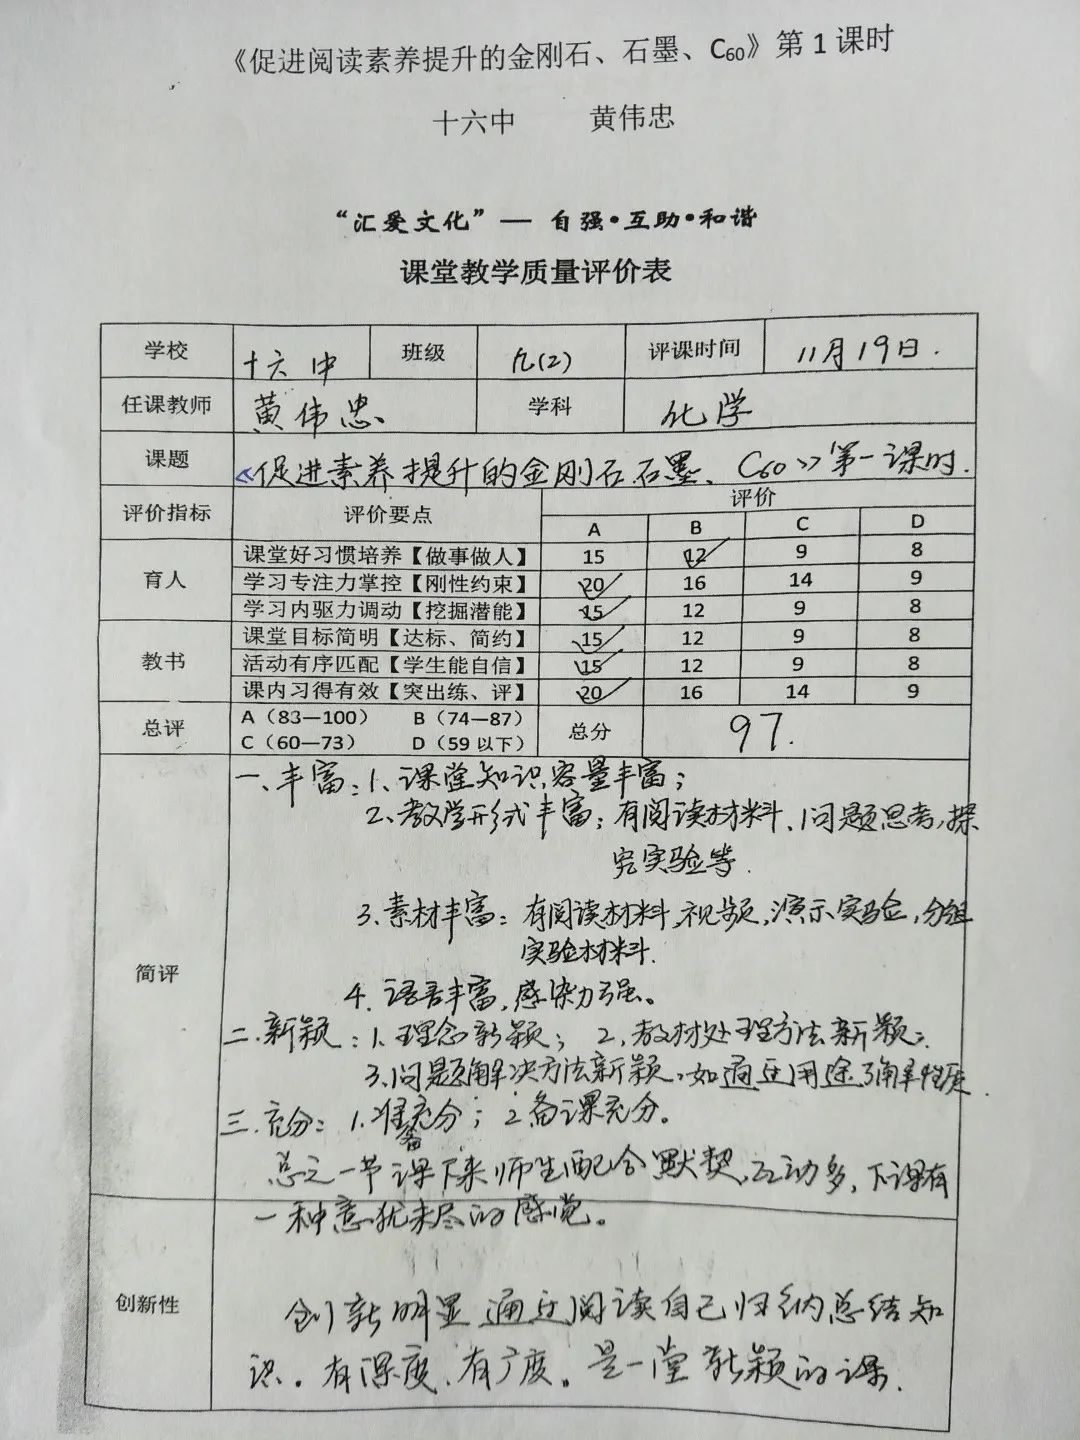 《促进阅读素养提升的金刚石、石墨、C₆₀》第1课时
十六中 黄伟忠
“汇爱文化”— 自强•互助•和谐
课堂教学质量评价表
学校 十六中 班级 九(2) 评课时间 11月19日.
任课教师 黄伟忠 学科 化学
课题 《促进素养提升的金刚石石墨、C60》第一课时.
评价指标 评价要点 评价
A B C D
育人 课堂好习惯培养【做事做人】 15 12✓ 9 8
学习专注力掌控【刚性约束】 20✓ 16 14 9
学习内驱力调动【挖掘潜能】 15✓ 12 9 8
教书 课堂目标简明【达标、简约】 15✓ 12 9 8
活动有序匹配【学生能自信】 15✓ 12 9 8
课内习得有效【突出练、评】 20✓ 16 14 9
总评 A(83—100) B(74—87) 总分 97.
C(60—73) D(59以下)
简评
一、丰富:1、课堂知识容量丰富;
2、教学形式丰富:有阅读材料、问题思考,探
究实验等.
3.素材丰富:有阅读材料,视频,演示实验,分组
实验材料.
4.语言丰富,感染力强。
二.新颖:1、理念新颖; 2、教材处理方法新颖;
3、问题解决方法新颖,如通过用途了解性质.
三.充分:1.准备充分;2备课充分。
总之一节课下来师生配合默契,互动多,下课有
一种意犹未尽的感觉。
创新性
创新明显通过阅读自己归纳总结知
识。有深度、有广度。是一堂新颖的课.